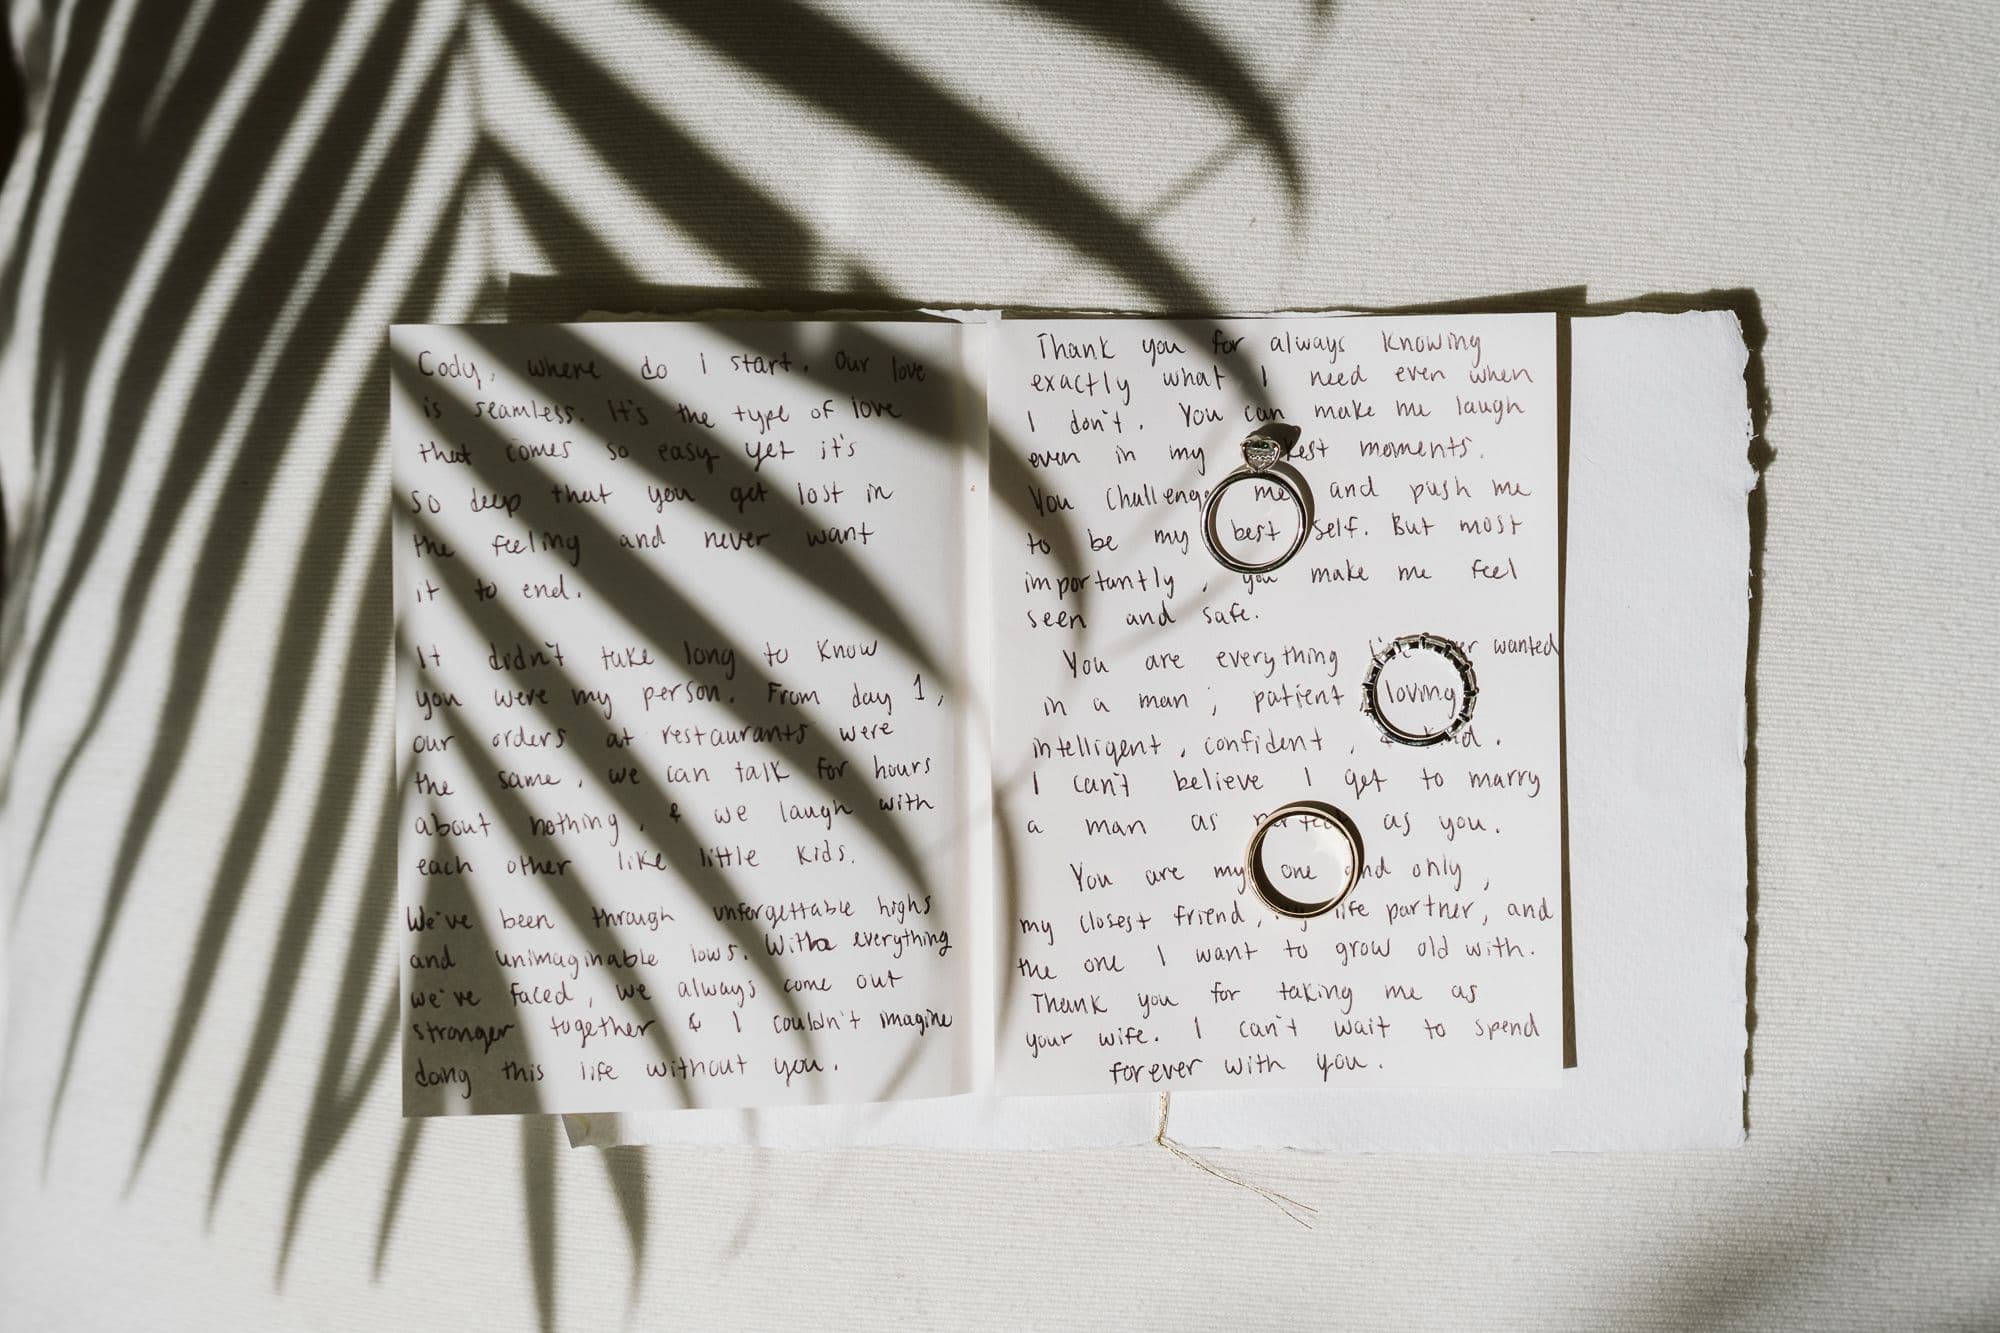 Cody, where do I start. Our love
is seamless. It's the type of love
that comes so easy yet it's
so deep that you get lost in
the feeling and never want
it to end.
It didn't take long to know
you were my person. From day 1,
our orders at restaurants were
the same, we can talk for hours
about nothing, & we laugh with
each other like little kids.
We've been through unforgettable highs
and unimaginable lows. With everything
we've faced, we always come out
stronger together & I couldn't imagine
doing this life without you.
Thank you for always knowing
exactly what I need even when
I don't. You can make me laugh
even in my moments.
You challenge me and push me
to be my best self. But most
importantly, you make me feel
seen and safe.
You are everything wanted
in a man; patient, loving
intelligent, confident,
I can't believe I get to marry
a man as perfect as you.
You are my one and only,
my closest friend, my life partner, and
the one I want to grow old with.
Thank you for taking me as
your wife. I can't wait to spend
forever with you.